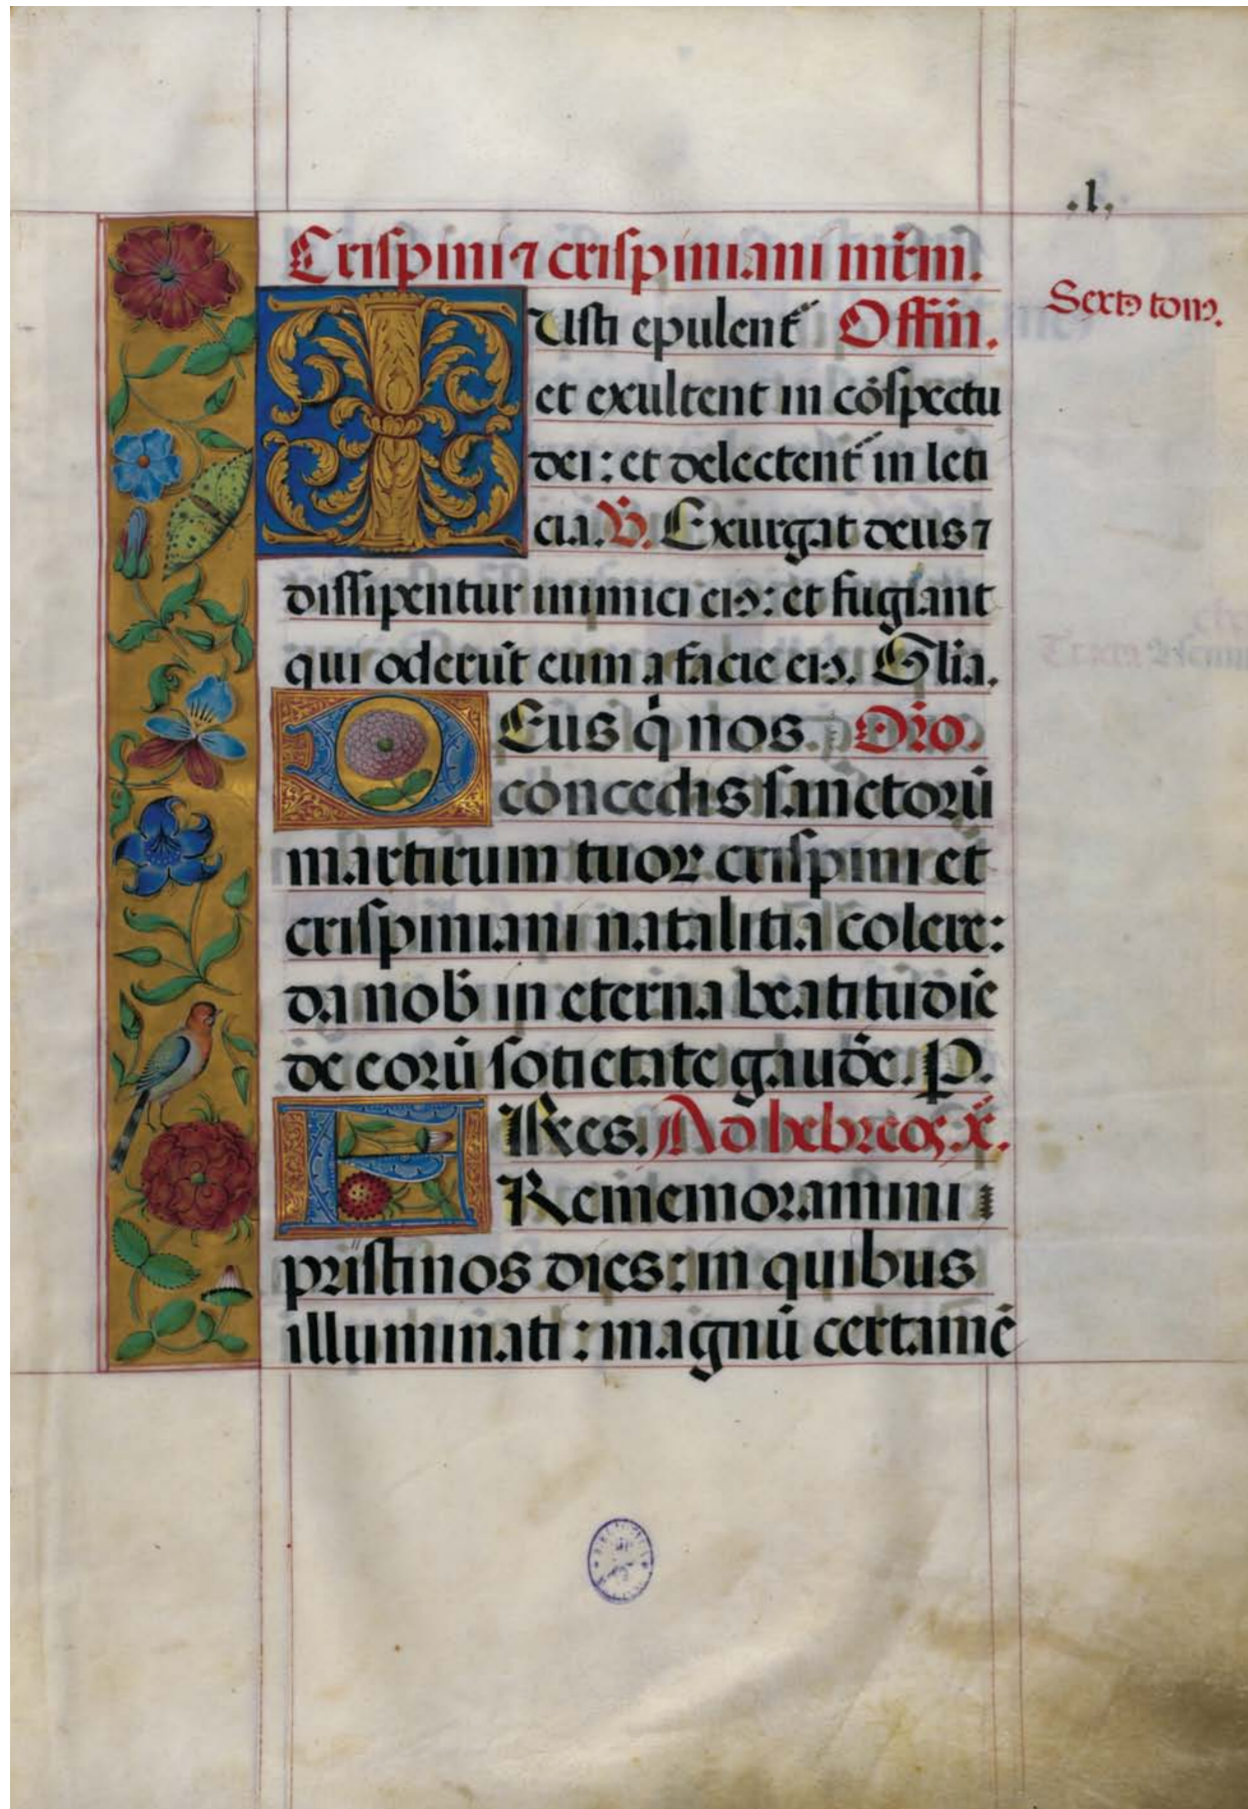 .l.
Crispini ⁊ crispiniani mr̃m.
Sextꝰ tomꝰ.
Iusti epulent᷑ Offiñ.
et exultent in cōspectu
dei: et delectent᷑ in leti
cia. V̄. Exurgat deus ⁊
dissipentur inimici eiꝰ: et fugiant
qui oderūt eum a facie eiꝰ. Gl̃ia.
Deus q̇ nos Or̃o.
concedis sanctorū
martirum tuoꝝ crispini et
crispiniani natalitia colere:
da nob̄ in eterna beatitudīe
de eorū sotietate gaudē. P.
Fr̄es. Ad hebreos. x̄.
Rememoramini
pristinos dies: in quibus
illuminati: magnū certamē